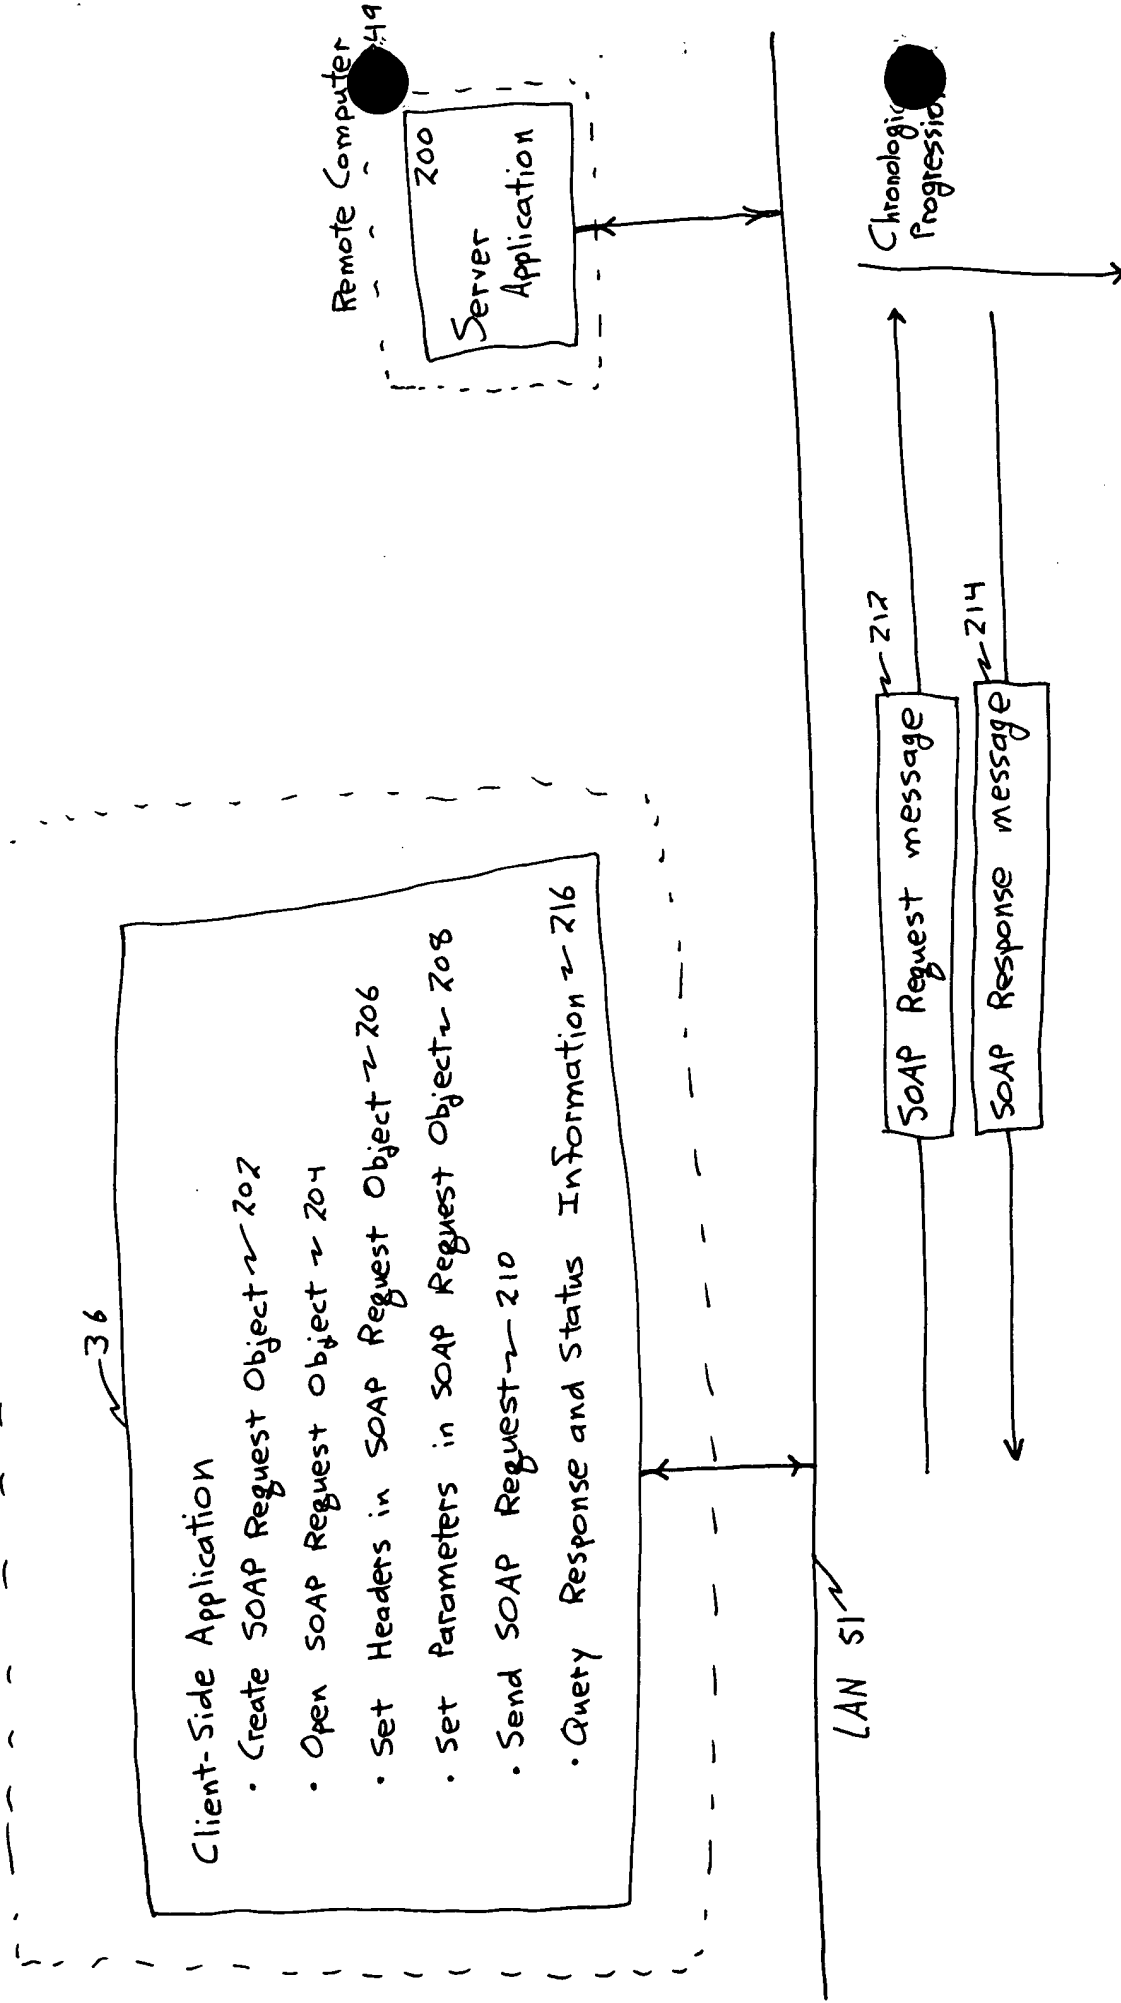 36
Client-Side Application
· Create SOAP Request Object ~ 202
· Open SOAP Request Object ~ 204
· Set Headers in SOAP Request Object ~ 206
· Set Parameters in SOAP Request Object ~ 208
· Send SOAP Request ~ 210
· Query Response and Status Information ~ 216
Remote Computer
49
200
Server
Application
LAN 51
SOAP Request message
212
SOAP Response message
214